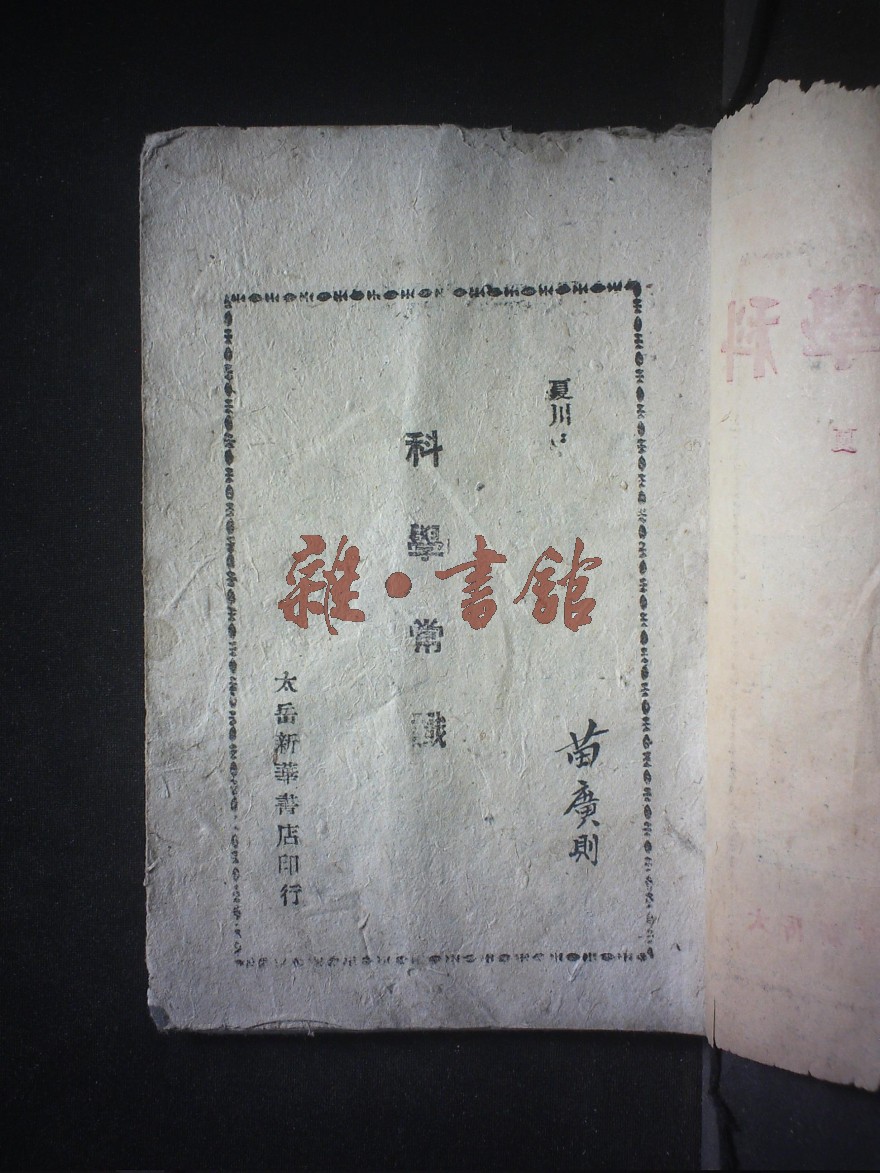 夏川
科學常識
苗廣則
太岳新華書店印行
雜·書館
學科